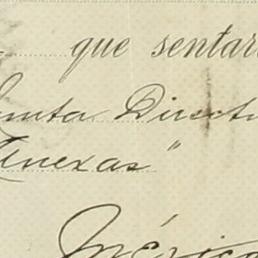 que sentar
Junta Direct
Anexas"
México